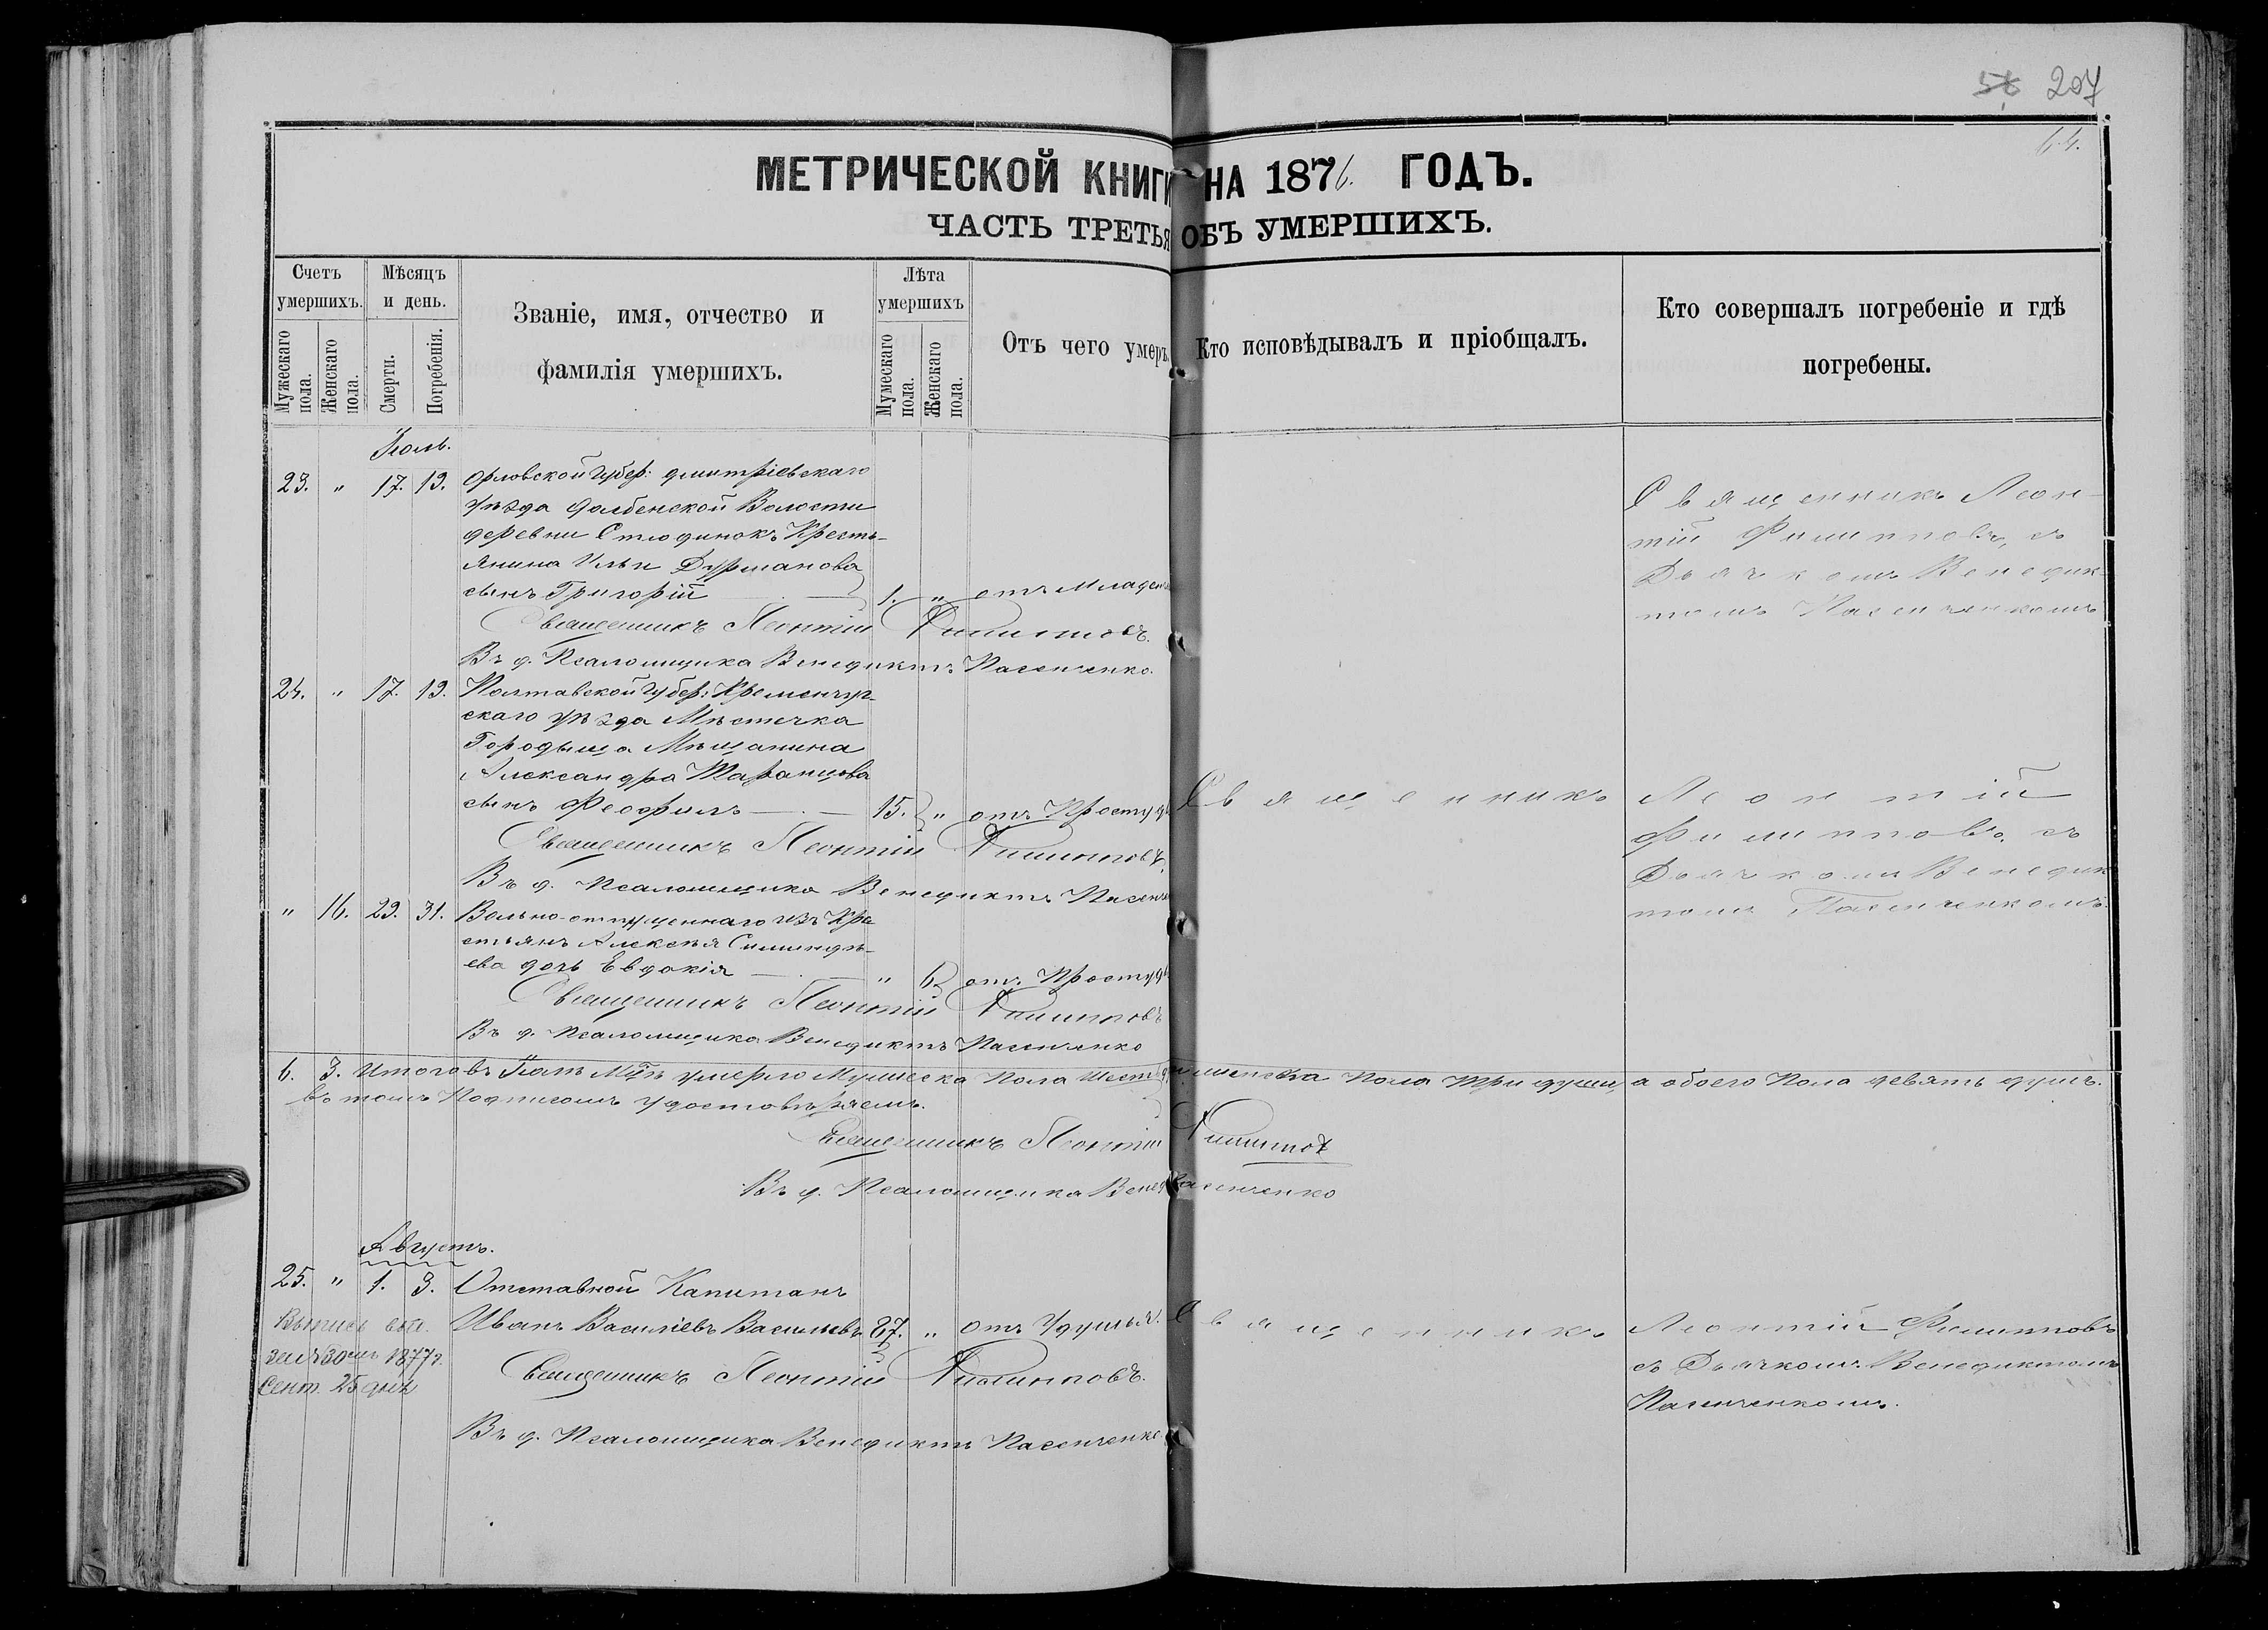 207
64.
МЕТРИЧЕСКОЙ КНИГИ НА 1876. ГОДЪ.
ЧАСТЬ ТРЕТЬЯ ОБЪ УМЕРШИХЪ.
Счетъ умершихъ.
Мужескаго пола.
Женскаго пола.
Мѣсяцъ и день.
Смерти.
Погребенія.
Званіе, имя, отчество и
фамилія умершихъ.
Лѣта умершихъ
Мужескаго пола.
Женскаго пола.
Отъ чего умеръ.
Кто исповѣдывалъ и пріобщалъ.
Кто совершалъ погребеніе и гдѣ
погребены.
Іюль.
23. " 17. 19. Орловской Губер: Дмитріевскаго
уѣзда Долбенской Волости
деревни Студинокъ Кресть-
янина Ильи Дурманова
сынъ Григорій 1. " отъ Младен
Священникъ Леонтій Филипповъ.
Въ д. Псаломщика Венедиктъ Пасенченко.
Священникъ Леон-
тій Филипповъ, съ
Дьячкомъ Венедик-
томъ Пасенченкомъ
24. " 17. 19. Полтавской Губер: Кременчуг-
скаго уѣзда Мѣстечка
Городыща Мѣщанина
Александра Таранцова
сынъ Феофилъ 15. " отъ Простуды
Священникъ Леонтій Филипповъ
Въ д. Псаломщика Венедиктъ Пасенч
Священникъ Леонтій
Филипповъ, съ
Дьячкомъ Венедик
томъ Пасенченкомъ.
" 16. 29. 31. Вольно-отпущеннаго изъ Кре
стьянъ Алексѣя
ева дочь Евдокія " 6 отъ Простуды
Священникъ Леонтій Филипповъ
Въ д. Псаломщика Венедиктъ Пасенченко
6. 3. Итого въ Іюлѣ Мцѣ умерло Мужеска Пола Шесть, женска Пола три души, а обоего Пола девять душъ.
въ томъ Подписомъ удостовѣряемъ.
Священникъ Леонтій Филипповъ
Въ д. Псаломщика Венед Пасенченко
Августъ.
25. " 1. 3. Отставной Капитанъ
Иванъ Василіевъ Васильевъ 67. " отъ Удушья.
Священникъ Леонтій Филипповъ.
Въ д. Псаломщика Венедиктъ Пасенченко
Священникъ Леонтій Филипповъ
съ Дьячкомъ Венедиктомъ
Пасенченкомъ.
Выпись выд.
за № 30мъ 1877 г.
Сент. 25 дня